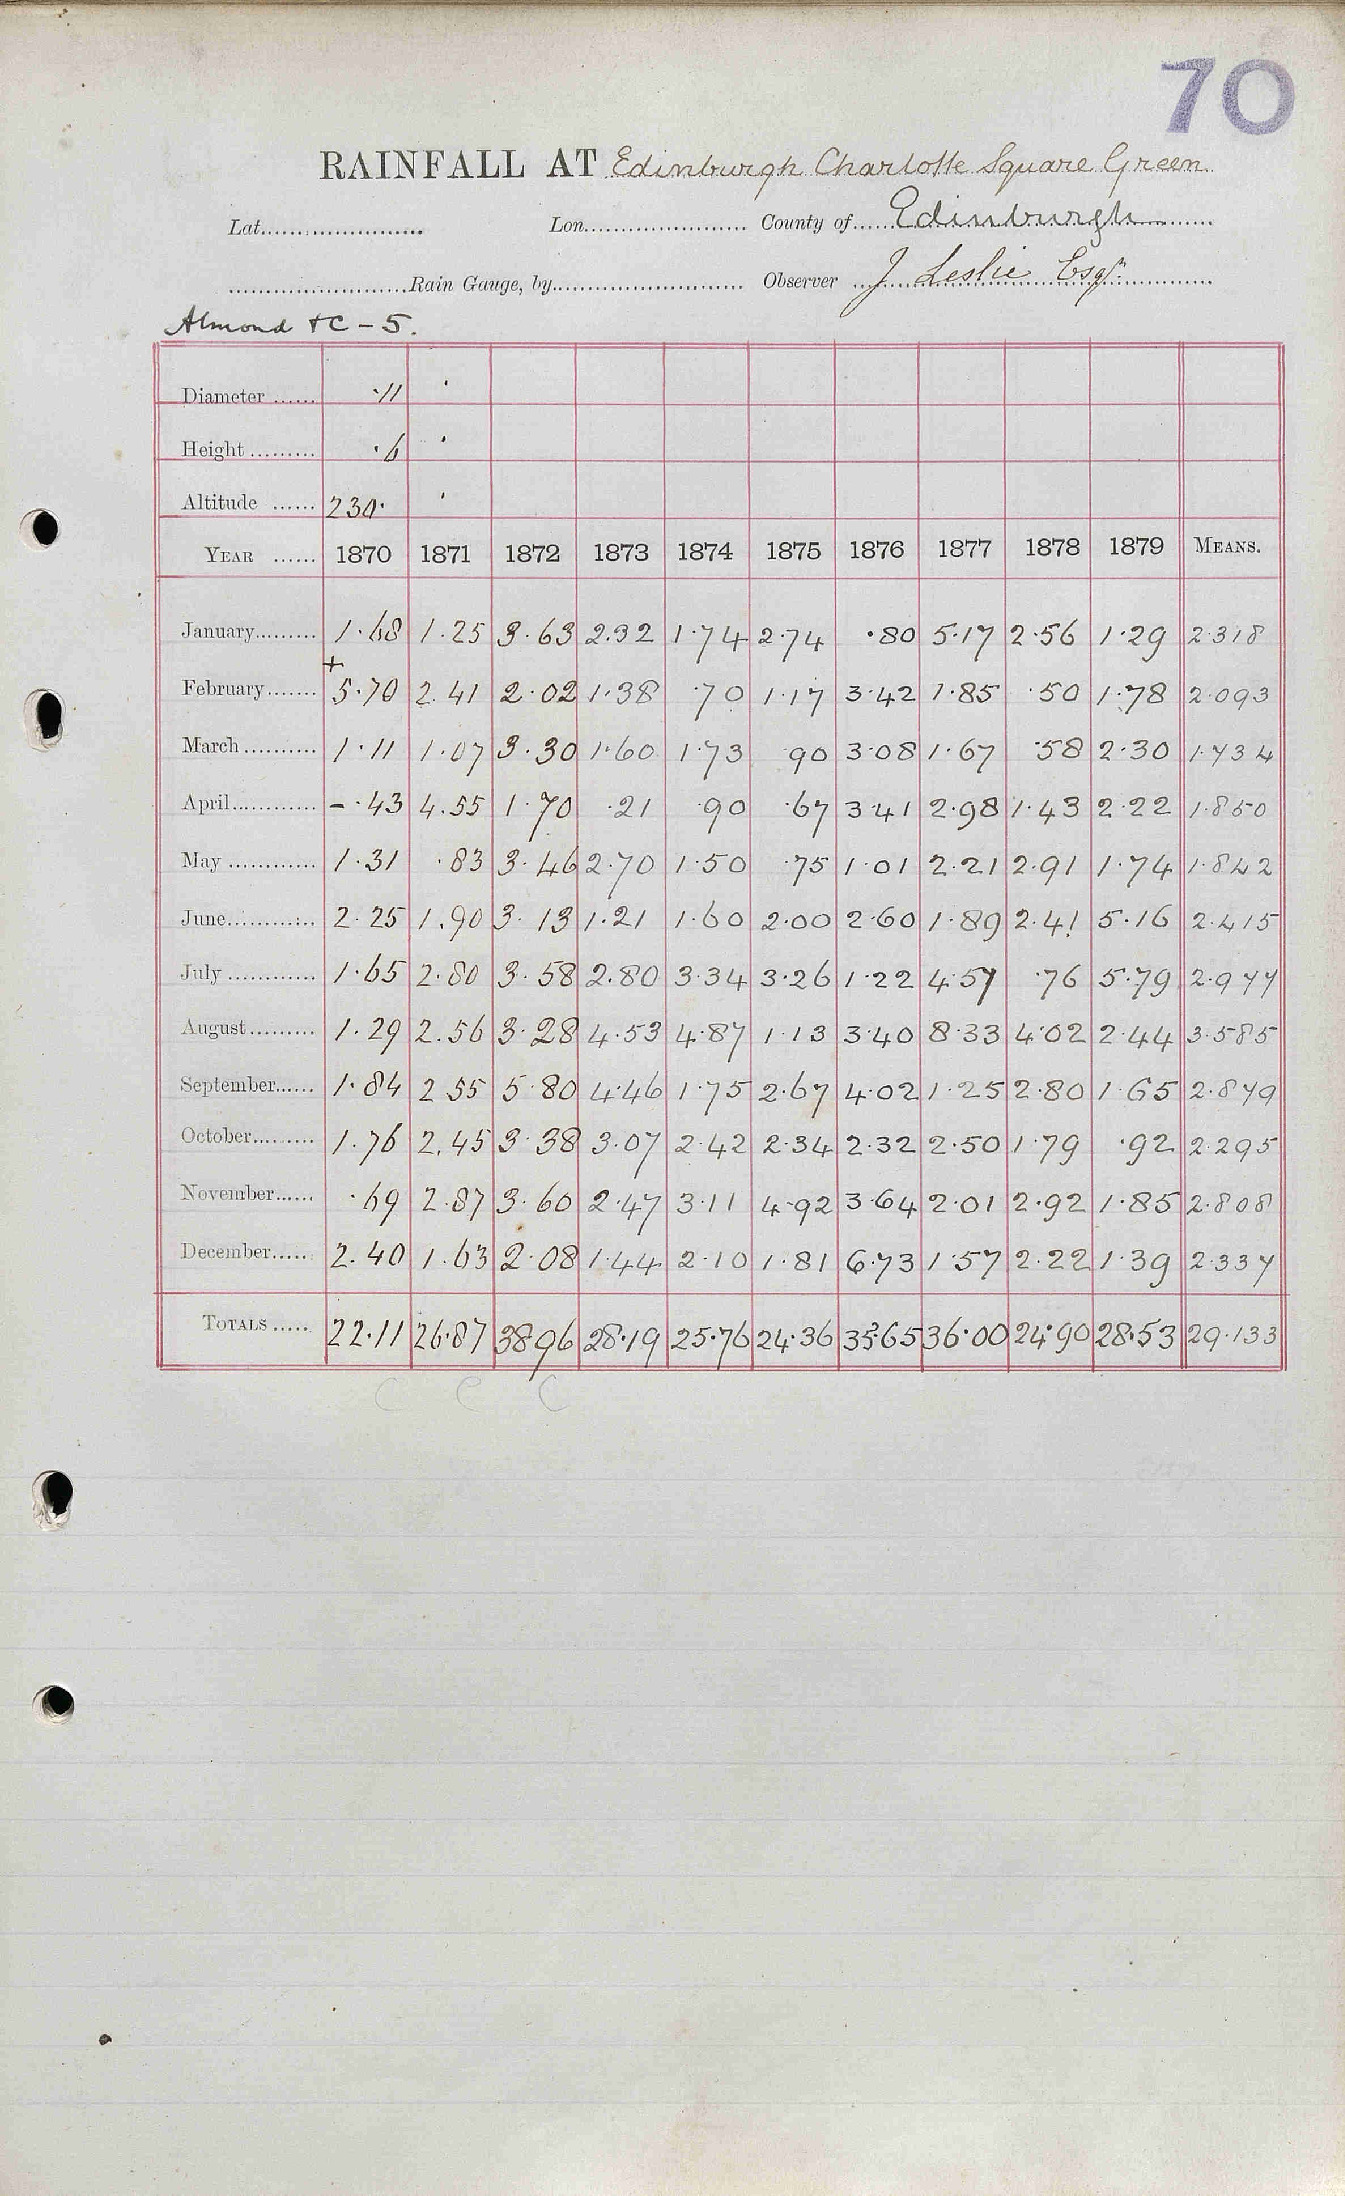 70
RAINFALL AT Edinburgh Charlotte Square Green
Lat. Lon. County of Edinburgh
Rain Gauge, by Observer J Leslie Esqr.
Almond &C - 5.
Diameter ...... ·11 '
Height ......... ·6 '
Altitude ...... 230· '
YEAR ...... 1870 1871 1872 1873 1874 1875 1876 1877 1878 1879 MEANS.
January......... 1·68 1·25 3·63 2·32 1·74 2·74 ·80 5·17 2·56 1·29 2·318
+
February....... 5·70 2·41 2·02 1·38 ·70 1·17 3·42 1·85 ·50 1·78 2·093
March .......... 1·11 1·07 3·30 1·60 1·73 90 3·08 1·67 ·58 2·30 1·734
April............ - ·43 4·55 1·70 ·21 ·90 ·67 3·41 2·98 1·43 2·22 1·850
May ............ 1·31 ·83 3·46 2·70 1·50 ·75 1·01 2·21 2·91 1·74 1·842
June............ 2·25 1·90 3·13 1·21 1·60 2·00 2·60 1·89 2·41 5·16 2·415
July ............ 1·65 2·80 3·58 2·80 3·34 3·26 1·22 4·57 ·76 5·79 2·977
August......... 1·29 2·56 3·28 4·53 4·87 1·13 3·40 8·33 4·02 2·44 3·585
September...... 1·84 2·55 5·80 4·46 1·75 2·67 4·02 1·25 2·80 1·65 2·879
October......... 1·76 2·45 3·38 3·07 2·42 2·34 2·32 2·50 1·79 ·92 2·295
November...... ·69 2·87 3·60 2·47 3·11 4·92 3·64 2·01 2·92 1·85 2·808
December...... 2·40 1·63 2·08 1·44 2·10 1·81 6·73 1·57 2·22 1·39 2·337
TOTALS ..... 22·11 26·87 38·96 28·19 25·76 24·36 35·65 36·00 24·90 28·53 29·133
C C C